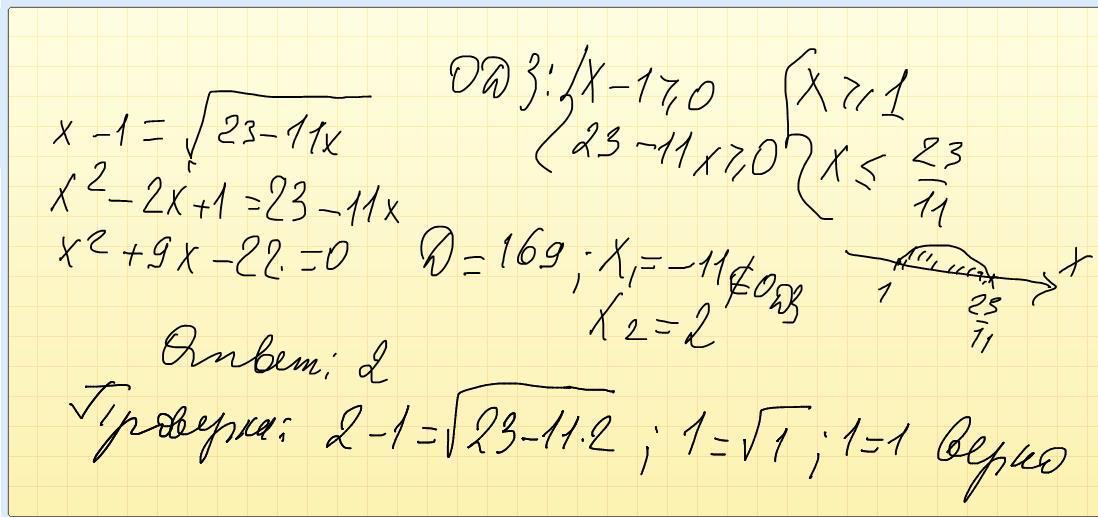 x - 1 = √(23 - 11x)
x² - 2x + 1 = 23 - 11x
x² + 9x - 22 = 0
ОДЗ: { x - 1 ≥ 0 { x ≥ 1
{ 23 - 11x ≥ 0 { x ≤ 23/11
D = 169; x₁ = -11 ∉ ОДЗ
x₂ = 2
1 23/11 x
Ответ: 2
Проверка: 2 - 1 = √(23 - 11·2); 1 = √1; 1 = 1 верно